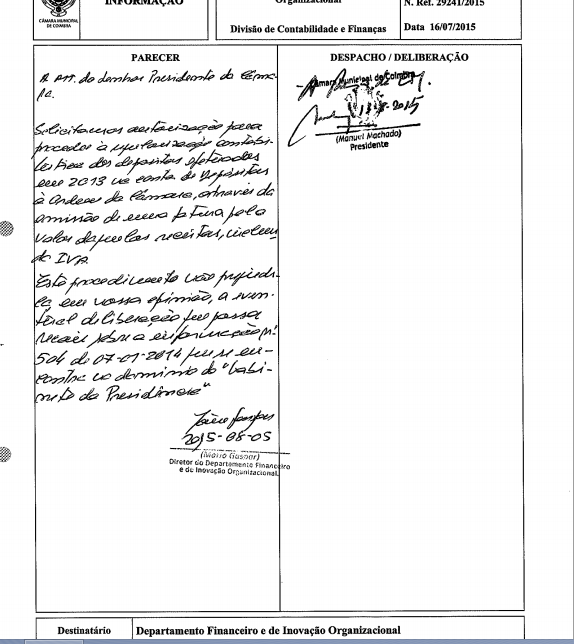 CÂMARA MUNICIPAL
DE COIMBRA
INFORMAÇÃO
Organizacional
Divisão de Contabilidade e Finanças
N. Ref. 29241/2015
Data 16/07/2015
PARECER
À At. do Senhor Presidente da Câma-
ra.
Solicitamos autorização para
proceder à regularização contabi-
lística dos depósitos efetuados
em 2013 na conta de Depósitos
à Ordem da Câmara, através da
emissão de uma fatura pelo
valor daquelas receitas, incluin
do IVA.
Este procedimento não prejudi-
ca, em nossa opinião, a even-
tual deliberação que possa
recair sobre a informação nº
504 de 07-01-2014 que se en-
contra no domínio do "Gabi-
nete da Presidência"
2015-08-05
(Mário Gaspar)
Diretor do Departamento Financeiro
e de Inovação Organizacional
DESPACHO / DELIBERAÇÃO
Câmara Municipal de Coimbra
(Manuel Machado)
Presidente
Destinatário
Departamento Financeiro e de Inovação Organizacional